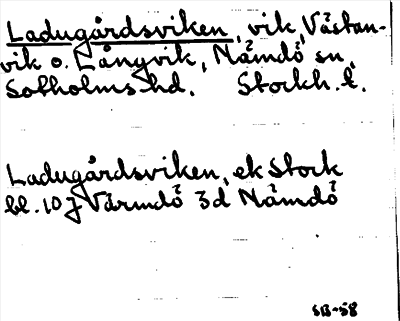 Ladugårdsviken, vik, Västan-
vik o. Långvik, Nämdö sn,
Sotholms hd. Stockh. l.
Ladugårdsviken, ek Stock
bl. 10 J Värmdö 3d Nämdö
SB-58